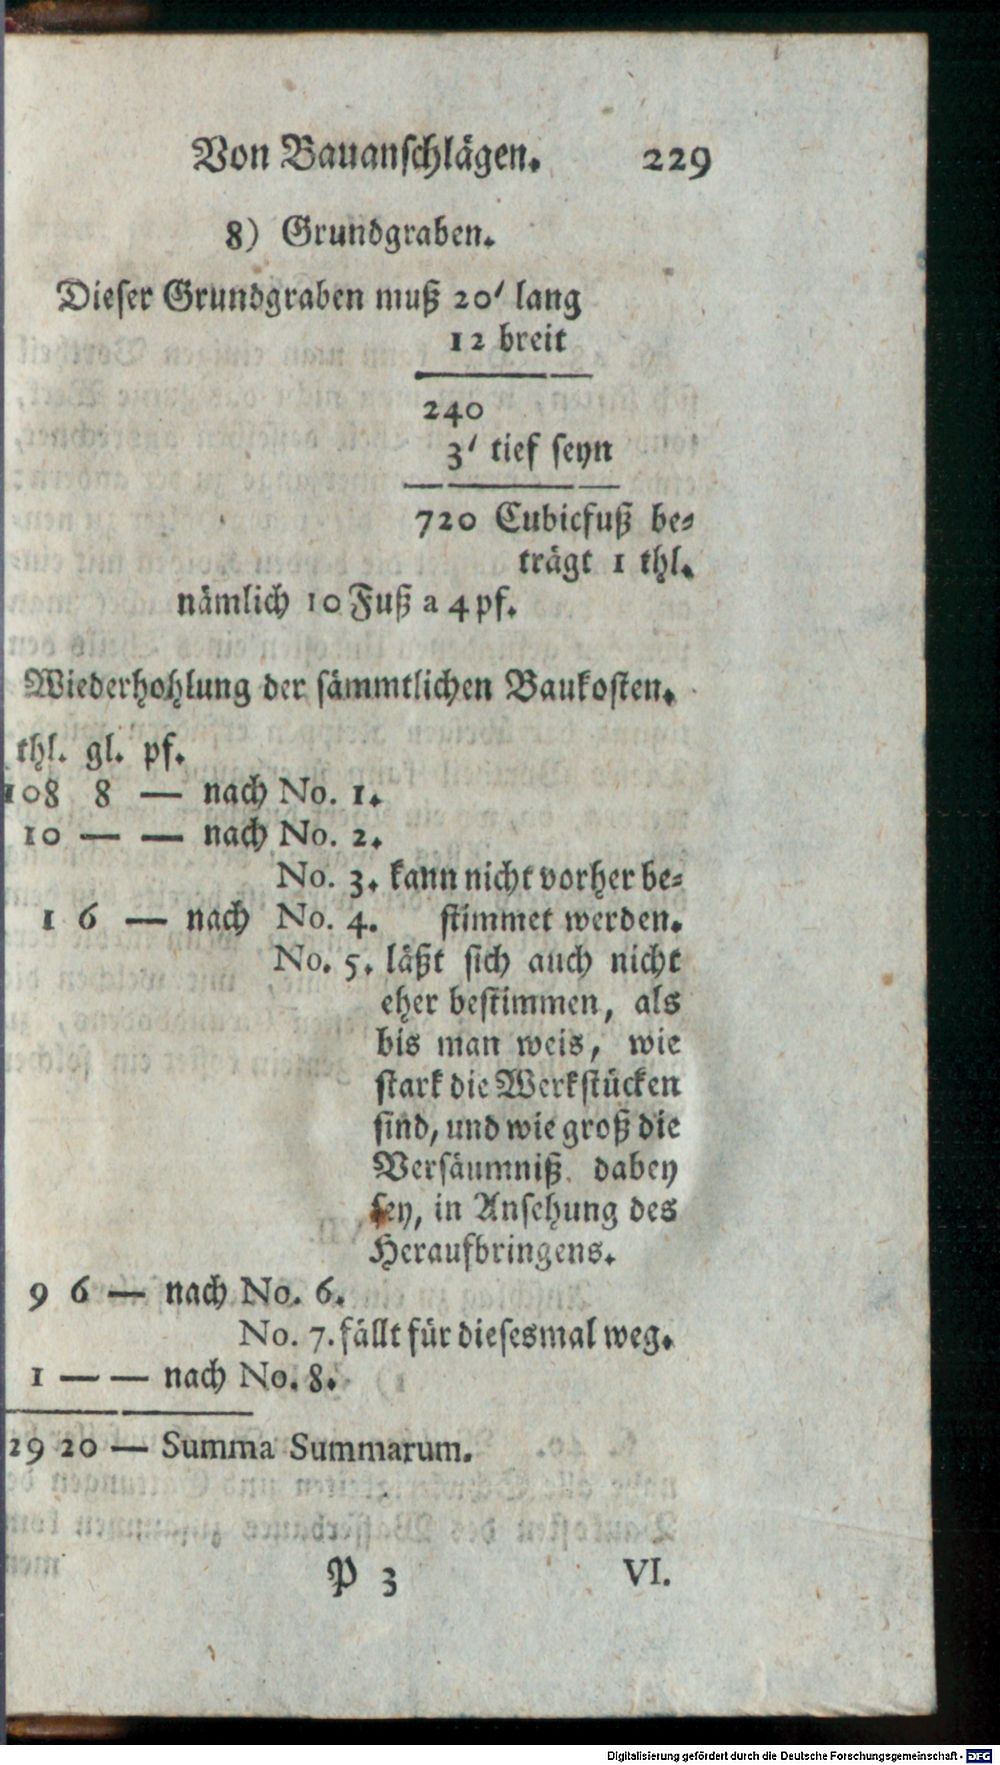 Von Bauanschlägen. 229
8) Grundgraben.
Dieser Grundgraben muß 20' lang
12 breit
240
3' tief seyn
720 Cubicfuß be-
trägt 1 thl.
nämlich 10 Fuß a 4 pf.
Wiederhohlung der sämmtlichen Baukosten.
thl. gl. pf.
108 8 — nach No. 1.
10 — — nach No. 2.
No. 3. kann nicht vorher be-
1 6 — nach No. 4. stimmet werden.
No. 5. läßt sich auch nicht
eher bestimmen, als
bis man weis, wie
stark die Werkstücken
sind, und wie groß die
Versäumniß dabey
sey, in Ansehung des
Heraufbringens.
9 6 — nach No. 6.
No. 7. fällt für diesesmal weg.
1 — — nach No. 8.
29 20 — Summa Summarum.
P 3 VI.
Digitalisierung gefördert durch die Deutsche Forschungsgemeinschaft - DFG